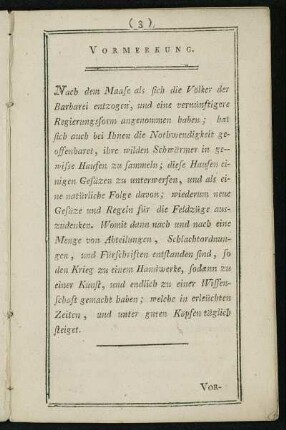 ( 3 )
VORMERKUNG.
Nach dem Maaſe als ſich die Völker der
Barbarei entzogen, und eine vernünftigere
Regierungsform angenommen haben; hat
ſich auch bei Ihnen die Nothwendigkeit ge-
offenbaret, ihre wilden Schwärmer in ge-
wiſſe Haufen zu ſammeln; dieſe Haufen ei-
nigen Geſäzen zu unterwerfen, und als ei-
ne natürliche Folge davon; wiederum neue
Geſäze und Regeln für die Feldzüge aus-
zudenken. Womit dann nach und nach eine
Menge von Abteilungen, Schlachtordnun-
gen, und Fürſchriften entſtanden ſind, ſo
den Krieg zu einem Handwerke, ſodann zu
einer Kunſt, und endlich zu einer Wiſſen-
ſchaft gemacht haben; welche in erleüchten
Zeiten, und unter guten Köpfen täglich
ſteiget.
VOR-